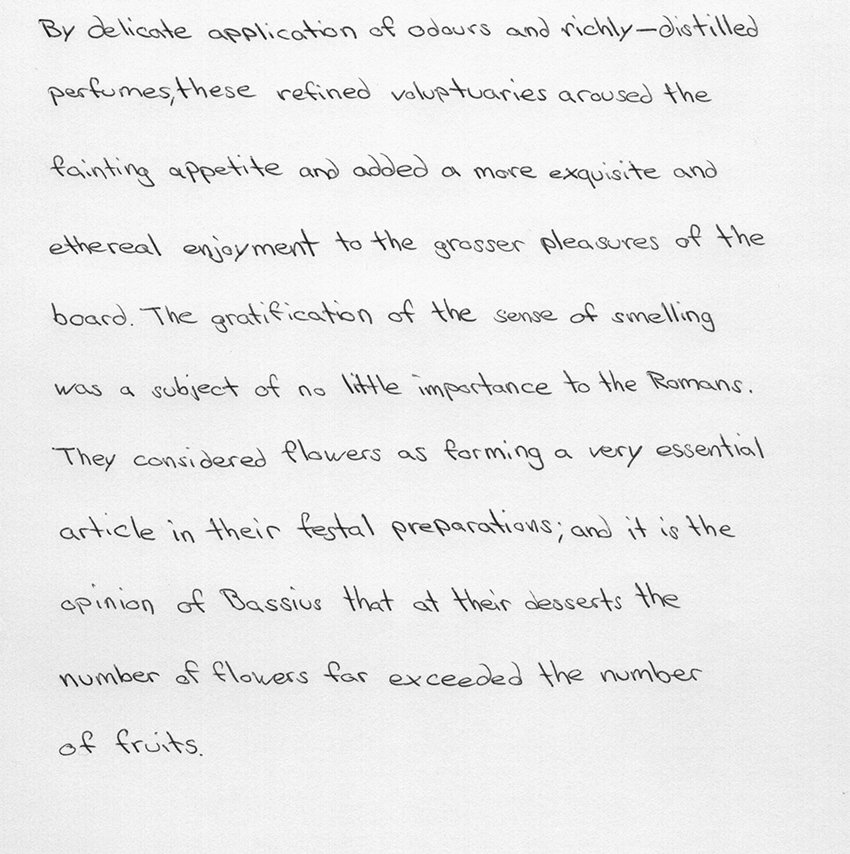 By delicate application of odours and richly—distilled
perfumes, these refined voluptuaries aroused the
fainting appetite and added a more exquisite and
ethereal enjoyment to the grosser pleasures of the
board. The gratification of the sense of smelling
was a subject of no little importance to the Romans.
They considered flowers as forming a very essential
article in their festal preparations; and it is the
opinion of Bassius that at their desserts the
number of flowers far exceeded the number
of fruits.